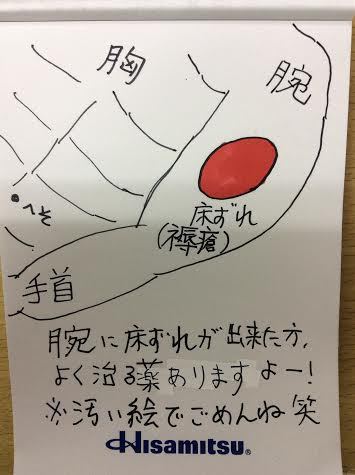 胸
腕
へそ
床ずれ
(褥瘡)
手首
腕に床ずれが出来た方、
よく治る薬ありますよー!
※汚い絵でごめんね 笑
Hisamitsu®